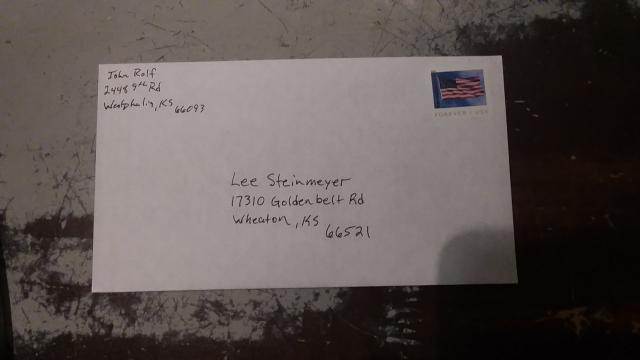 John Rolf
2448 9th Rd
Westphalia, KS 66093
FOREVER USA
Lee Steinmeyer
17310 Goldenbelt Rd
Wheaton, KS
66521